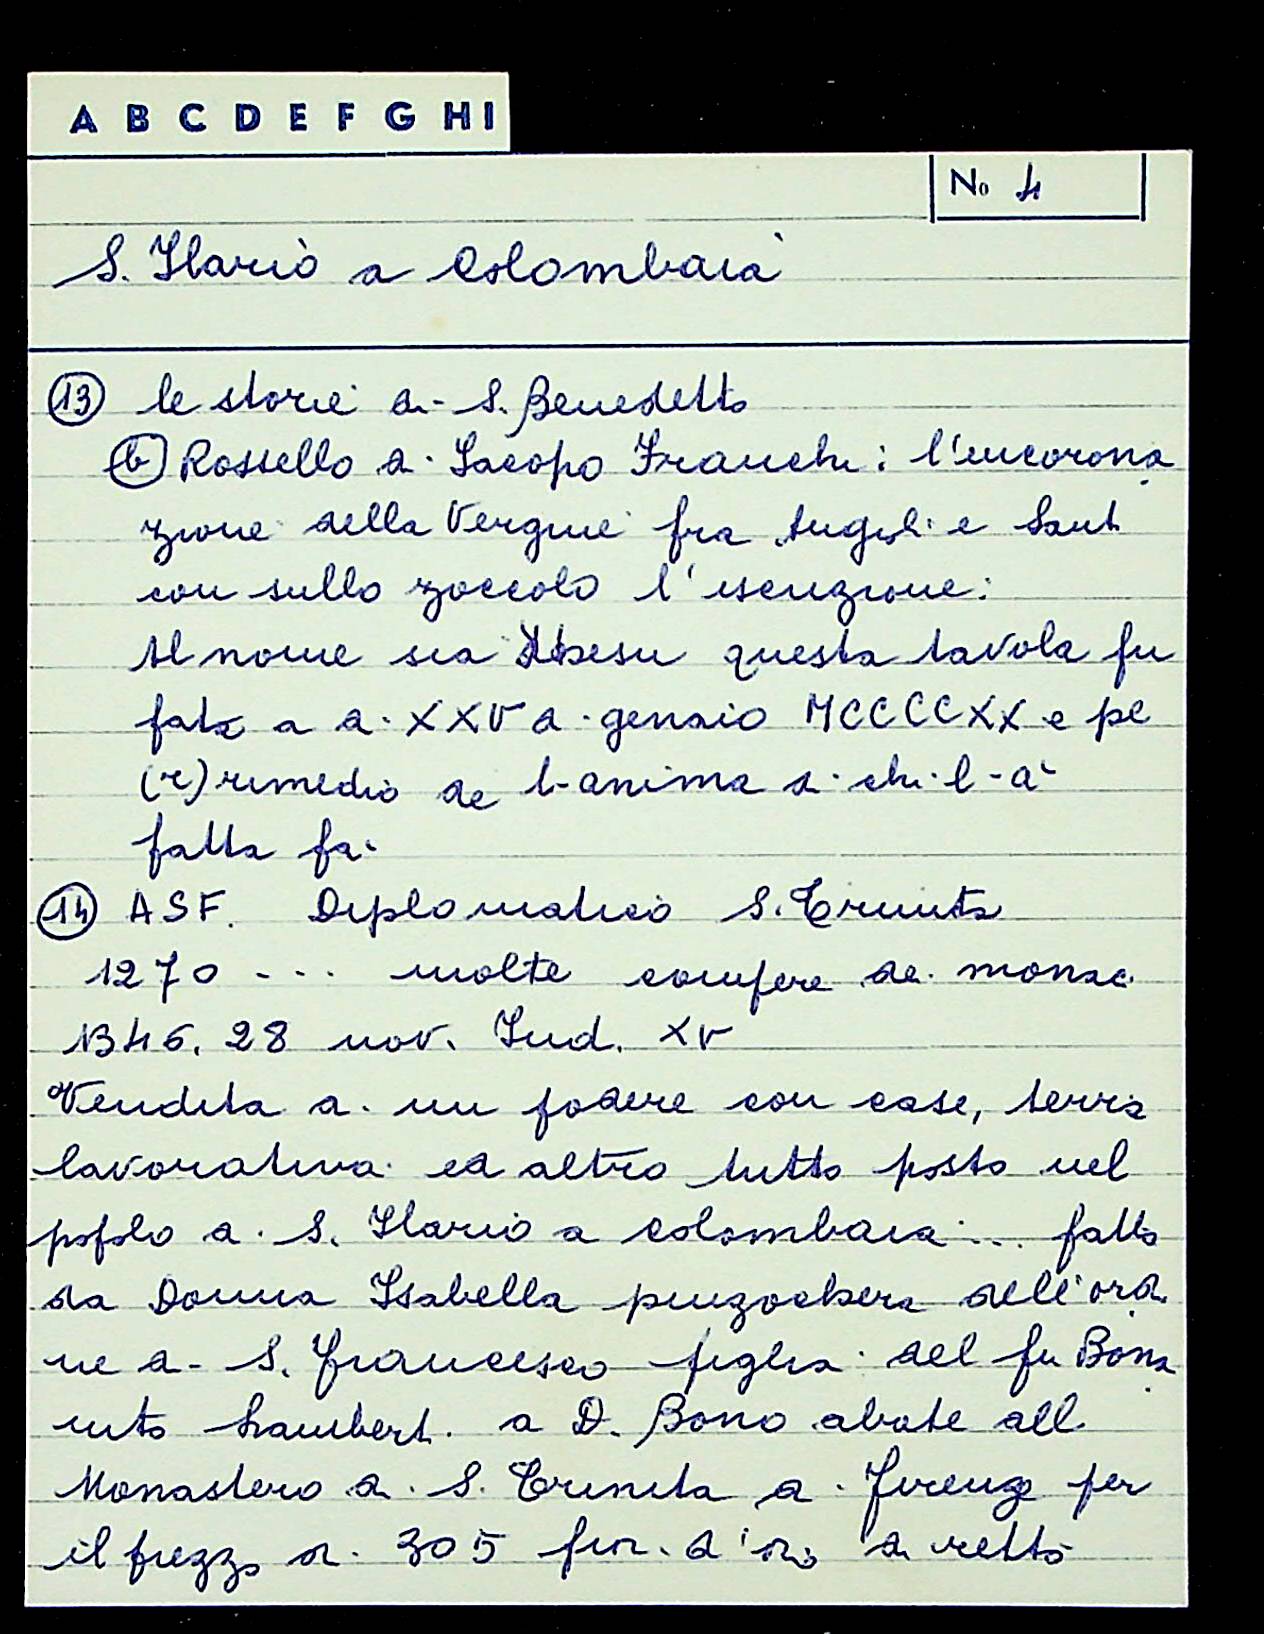 A B C D E F G H I
No 4
S. Ilario a Colombaia
13 le storie di S. Benedetto
b) Rossello di Jacopo Franchi: l'incorona
zione della Vergine fra Angeli e Santi
con sullo zoccolo l'iscrizione:
Al nome sia questa tavola fu
fata a di XXV di gennaio MCCCCXX e pe
(r) rimedio de l-anima di chi l-a
fatta fa
14 ASF. Diplomatico S. Trinita
1270 - - - molte compere dei monac
1346. 28 nov. Ind. XV
Vendita di un podere con case, terra
lavorativa ed altro tutto posto nel
popolo di S. Ilario a Colombaia ... fatto
da Donna Isabella pinzochera dell'ordi
ne di S. Francesco figlia del fu Bona
iuto Lamberti a D. Bono abate del
Monastero di S. Trinita di Firenze per
il prezzo di 305 fior. d'oro di retto